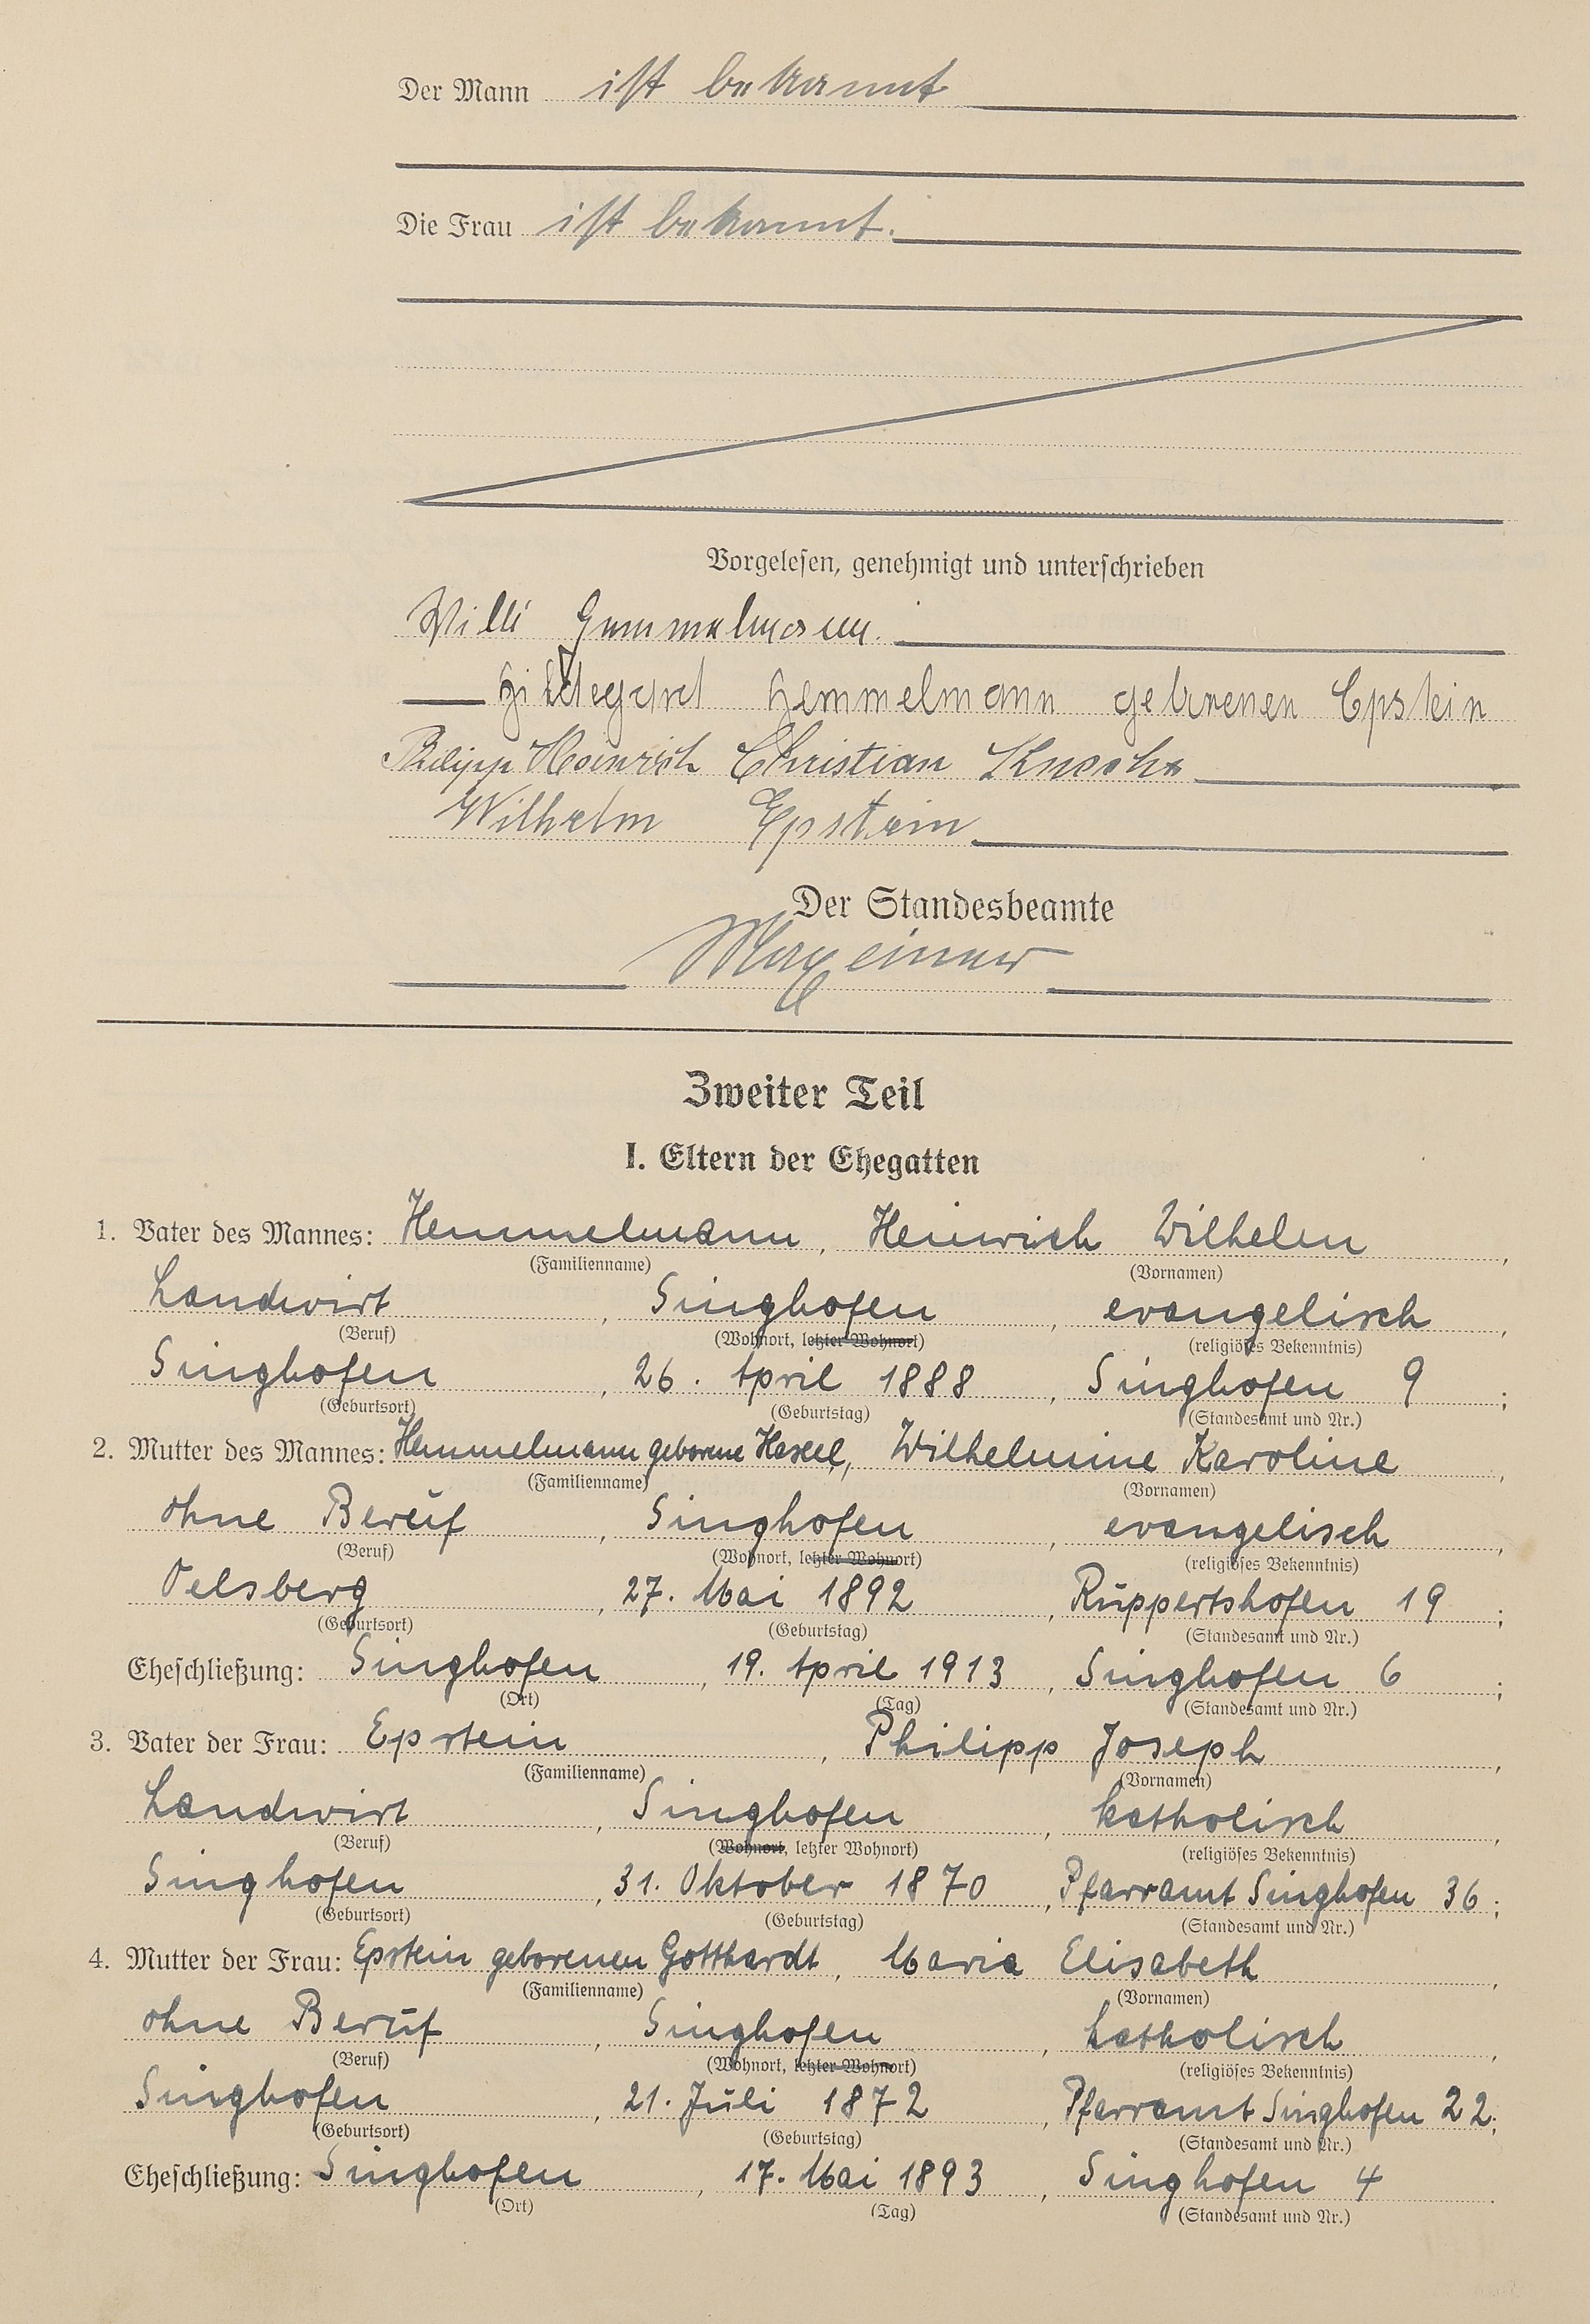 Der Mann ist bekannt
Die Frau ist bekannt.
Vorgelesen, genehmigt und unterschrieben
Willi Hemmelmann.
Hildegard Hemmelmann geborenen Epstein
Philipp Heinrich Christian
Wilhelm Epstein
Der Standesbeamte
Maxeiner
Zweiter Teil
I. Eltern der Ehegatten
1. Vater des Mannes: Hemmelmann, Heinrich Wilhelm,
(Familienname) (Vornamen)
Landwirt, Singhofen, evangelisch,
(Beruf) (Wohnort, letzter Wohnort) (religiöses Bekenntnis)
Singhofen, 26. April 1888, Singhofen 9;
(Geburtsort) (Geburtstag) (Standesamt und Nr.)
2. Mutter des Mannes: Hemmelmann geborene, Wilhelmine Karoline,
(Familienname) (Vornamen)
ohne Beruf, Singhofen, evangelisch,
(Beruf) (Wohnort, letzter Wohnort) (religiöses Bekenntnis)
Oelsberg, 27. Mai 1892, Ruppertshofen 19;
(Geburtsort) (Geburtstag) (Standesamt und Nr.)
Eheschließung: Singhofen, 19. April 1913, Singhofen 6;
(Ort) (Tag) (Standesamt und Nr.)
3. Vater der Frau: Epstein, Philipp Joseph,
(Familienname) (Vornamen)
Landwirt, Singhofen, katholisch,
(Beruf) (Wohnort, letzter Wohnort) (religiöses Bekenntnis)
Singhofen, 31. Oktober 1870, Pfarramt Singhofen 36;
(Geburtsort) (Geburtstag) (Standesamt und Nr.)
4. Mutter der Frau: Epstein geborenen Gotthardt, Maria Elisabeth,
(Familienname) (Vornamen)
ohne Beruf, Singhofen, katholisch,
(Beruf) (Wohnort, letzter Wohnort) (religiöses Bekenntnis)
Singhofen, 21. Juli 1872, Pfarramt Singhofen 22;
(Geburtsort) (Geburtstag) (Standesamt und Nr.)
Eheschließung: Singhofen, 17. Mai 1893, Singhofen 4.
(Ort) (Tag) (Standesamt und Nr.)